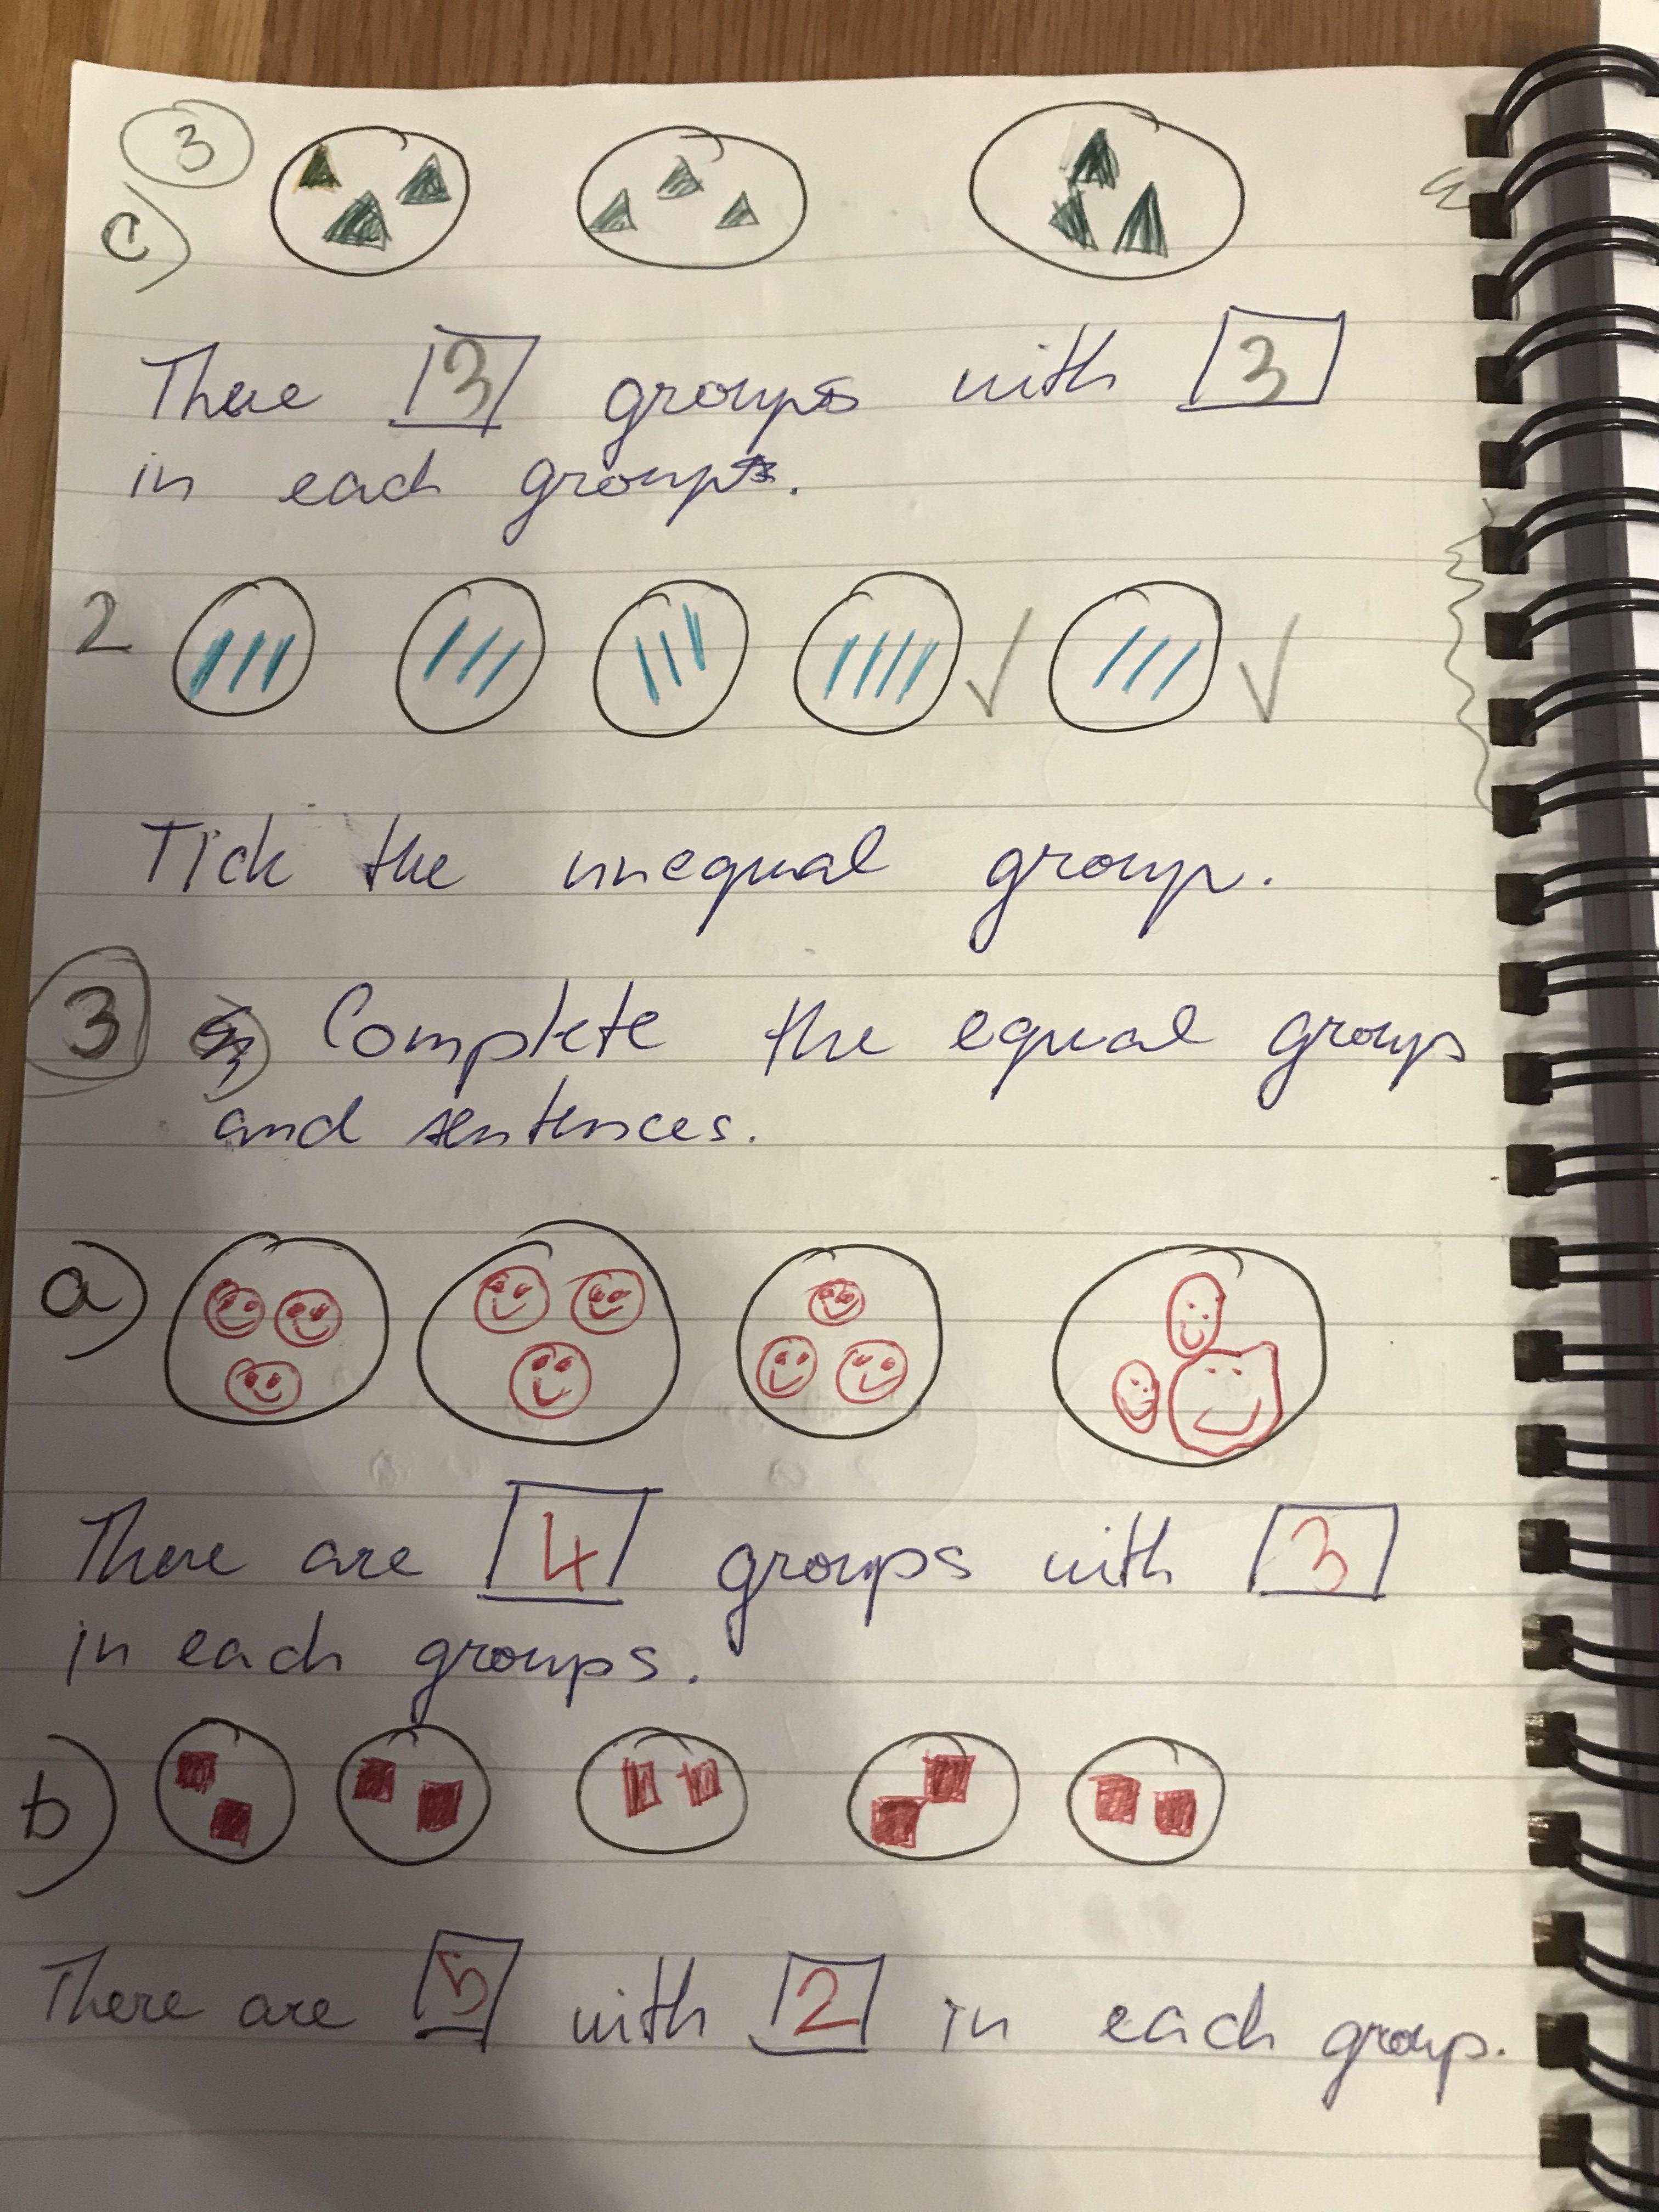 3
c)
There 3 groups with 3
in each group.
2
Tick the unequal group.
3 Complete the equal groups
and sentences.
a)
There are 4 groups with 3
in each groups.
b)
There are 5 with 2 in each group.